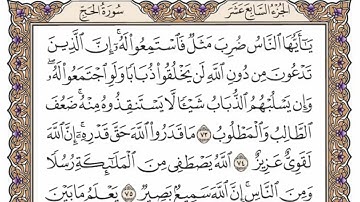 الجزء السابع عشر
سورة الحج
يَٰٓأَيُّهَا ٱلنَّاسُ ضُرِبَ مَثَلٞ فَٱسۡتَمِعُواْ لَهُۥٓۚ إِنَّ ٱلَّذِينَ
تَدۡعُونَ مِن دُونِ ٱللَّهِ لَن يَخۡلُقُواْ ذُبَابٗا وَلَوِ ٱجۡتَمَعُواْ لَهُۥۖ
وَإِن يَسۡلُبۡهُمُ ٱلذُّبَابُ شَيۡـٔٗا لَّا يَسۡتَنقِذُوهُ مِنۡهُۚ ضَعُفَ
ٱلطَّالِبُ وَٱلۡمَطۡلُوبُ ٧٣ مَا قَدَرُواْ ٱللَّهَ حَقَّ قَدۡرِهِۦٓۚ إِنَّ ٱللَّهَ
لَقَوِيٌّ عَزِيزٌ ٧٤ ٱللَّهُ يَصۡطَفِي مِنَ ٱلۡمَلَٰٓئِكَةِ رُسُلٗا
وَمِنَ ٱلنَّاسِۚ إِنَّ ٱللَّهَ سَمِيعُۢ بَصِيرٞ ٧٥ يَعۡلَمُ مَا بَيۡنَ